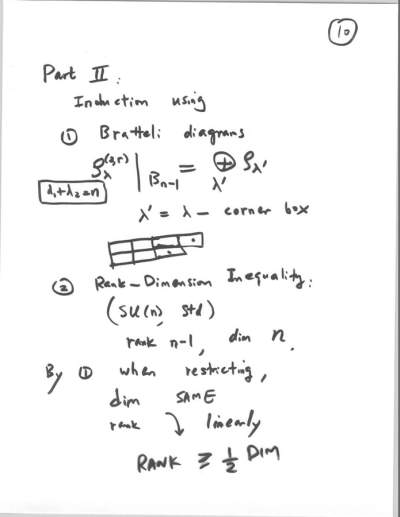 10
Part II :
Induction using
① Bratteli diagrams
ρ_λ^(2,r) | B_{n-1} = ⊕_{λ'} ρ_{λ'}
λ₁+λ₂=n
λ' = λ - corner box
② Rank-Dimension Inequality:
(SU(n), std)
rank n-1, dim n.
By ① when restricting,
dim SAME
rank ↘ linearly
RANK ≥ ½ DIM